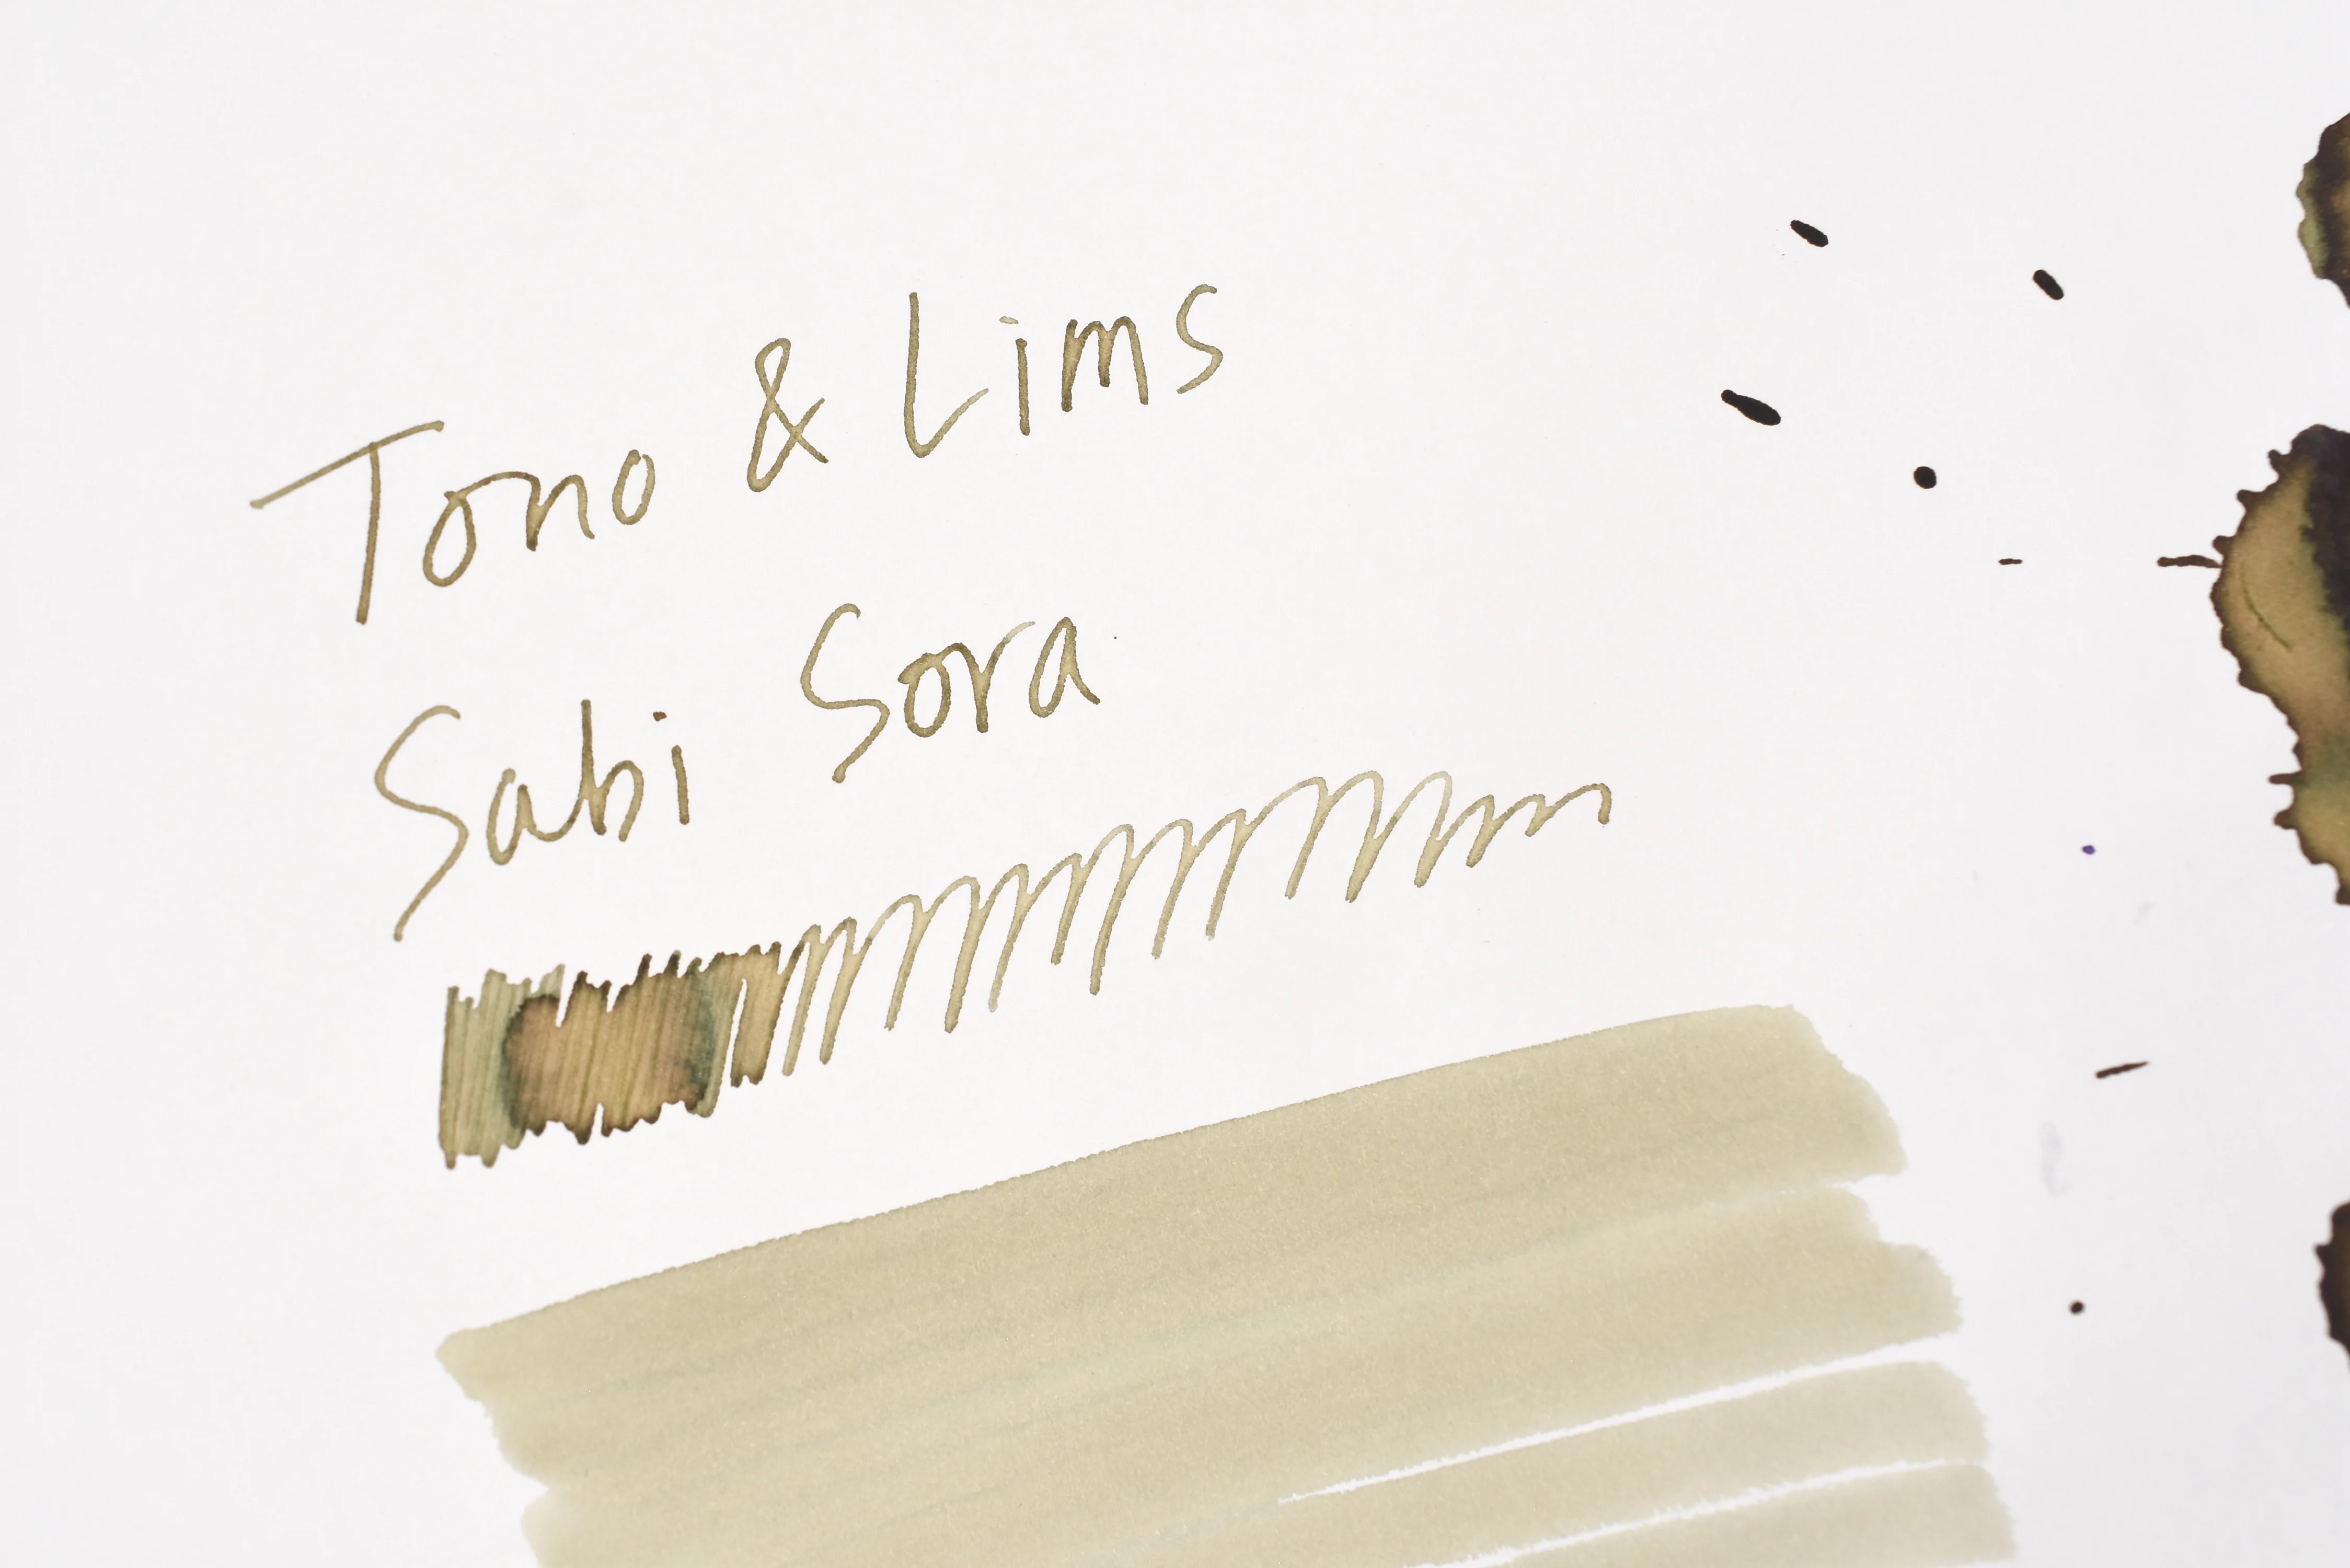 Tono & Lims
Sabi Sora